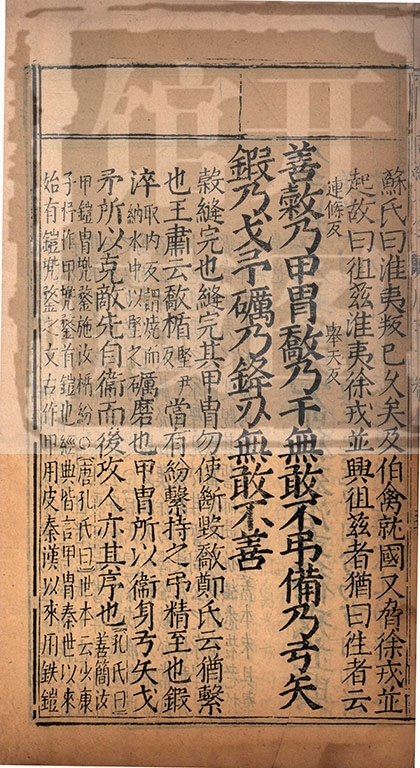 蘇氏曰淮夷叛已久矣及伯禽就國又脅徐戎並
起故曰徂茲淮夷徐戎並興徂茲者猶曰徃者云
善敹乃甲冑敿乃干無敢不弔備乃弓矢
連條反
舉夭反
鍛乃戈矛礪乃鋒刃無敢不善
敹縫完也縫完其甲冑勿使斷毀敿鄭氏云猶繫
也王肅云敿楯當有紛繫持之弔精至也鍛
竪尹
淬礪磨也甲冑所以衛身弓矢戈
取内反謂燒而
納水中以堅之
矛所以克敵先自衛而後攻人亦其序也
孔氏曰
善簡汝
甲鎧冑兠鍪施汝楯紛○唐孔氏曰世本云少康
子杼作甲兠鍪首鎧也經典皆言甲冑秦世以來
始有鎧兠鍪之文古作甲用皮秦漢以來用鉄鎧